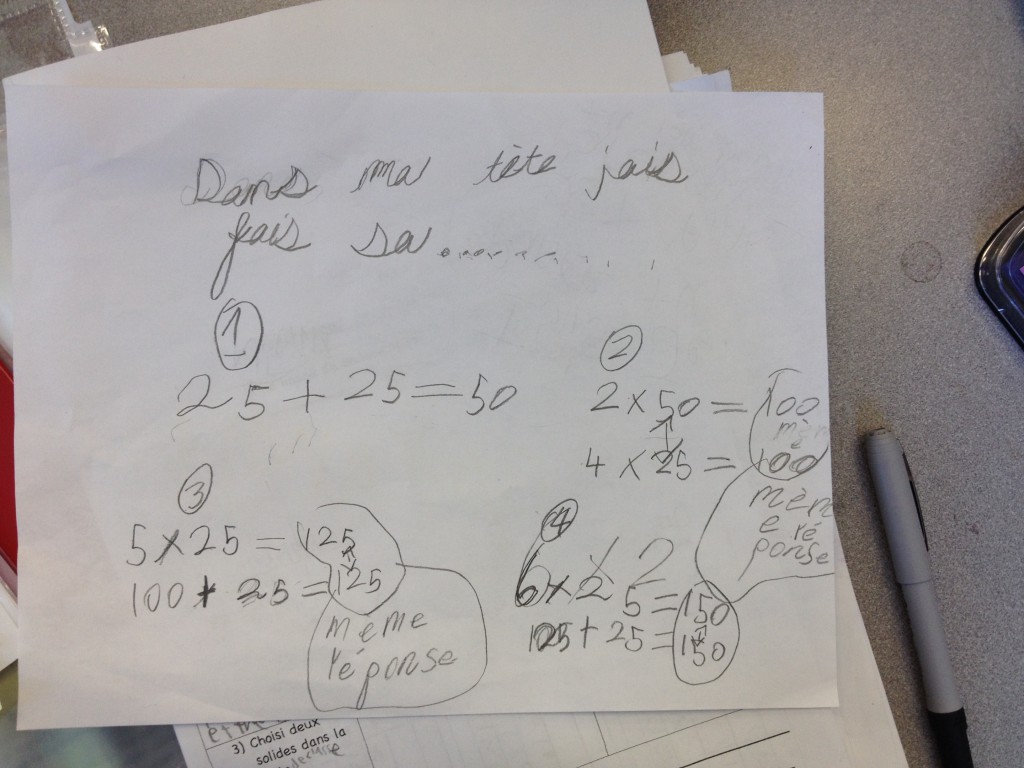 Dans ma tête jais
fais sa...............
1
25 + 25 = 50
2
2 x 50 = 100
4 x 25 = 100
mêm
e ré
ponse
3
5 x 25 = 125
100 + 25 = 125
même
réponse
4
6 x 25 = 150
125 + 25 = 150
3) Choisi deux
solides dans la